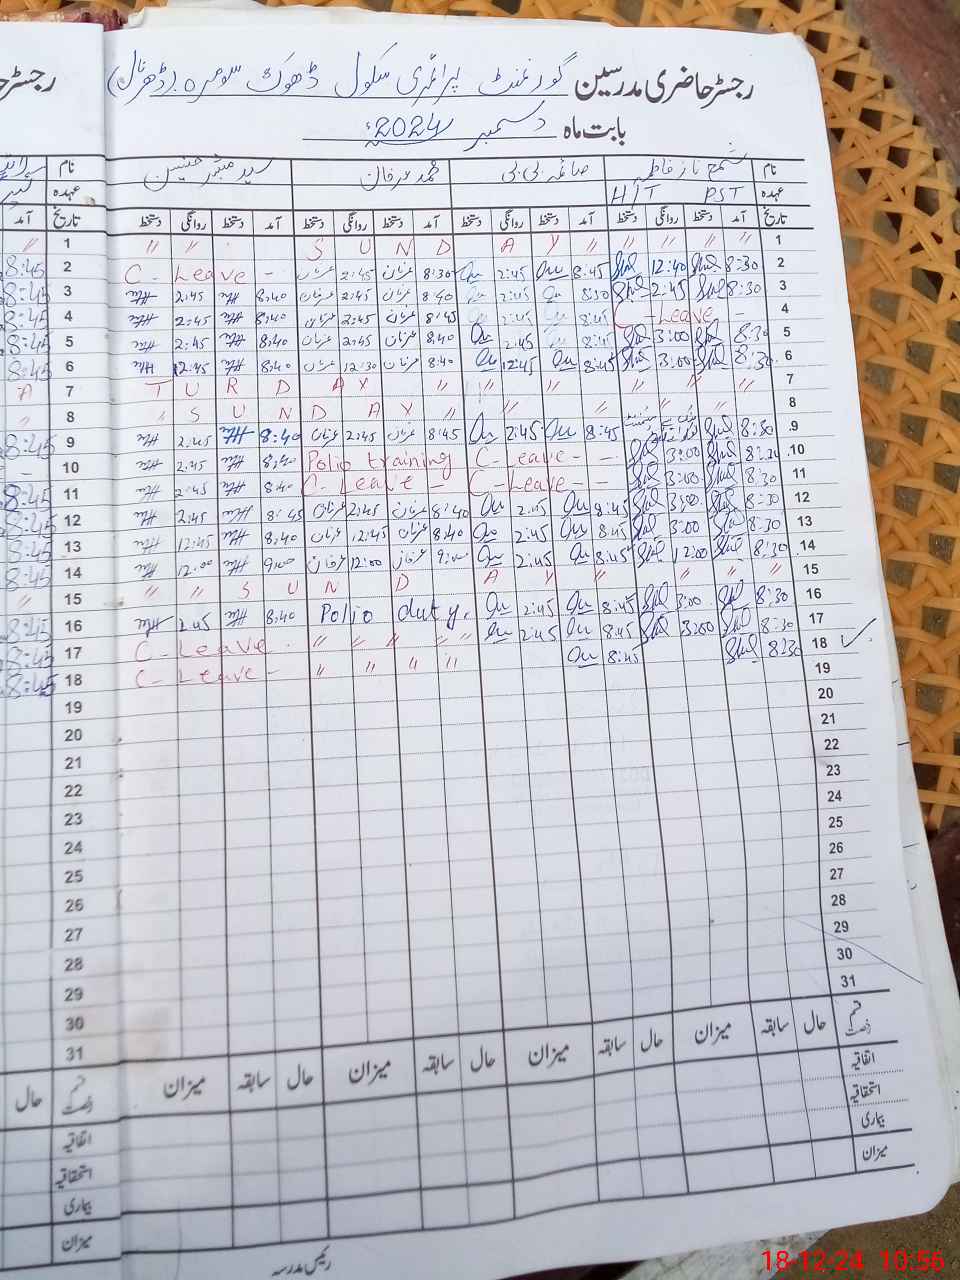 رجسٹر حاضری مدرسین گورنمنٹ پرائمری سکول ڈھوک سومرہ (ڈھرنال)
بابت ماہ دسمبر 2024ء
نام شمع ناز فاطمہ صائمہ بی بی محمد عرفان سید مبشر حسنین نام
عہدہ PST HIT عہدہ
تاریخ آمد دستخط روانگی دستخط آمد دستخط روانگی دستخط آمد دستخط روانگی دستخط آمد دستخط روانگی دستخط تاریخ آمد
1 〃 〃 S U N D A Y 〃 〃 〃 〃 〃 1 〃
2 C - Leave - عرفان 2:45 عرفان 8:30 2:45 8:45 12:40 8:30 2 8:45
3 2:45 8:40 عرفان 2:45 عرفان 8:40 2:45 8:30 2:45 8:30 3 8:45
4 2:45 8:40 عرفان 2:45 عرفان 8:45 2:45 8:45 C - Leave - 4 8:45
5 2:45 8:40 عرفان 2:45 عرفان 8:40 2:45 8:45 3:00 8:30 5 8:45
6 12:45 8:40 عرفان 12:30 عرفان 8:40 12:45 8:45 3:00 8:30 6 8:45
7 T U R D A Y 〃 〃 〃 〃 〃 〃 〃 7 A
8 〃 S U N D A Y 〃 〃 〃 〃 8 〃
9 2:45 8:40 عرفان 2:45 عرفان 8:45 2:45 8:45 8:30 9 8:45
10 2:45 8:40 Polio training C - Leave - - 3:00 8:30 10 -
11 2:45 8:40 C - Leave - C - Leave - - 3:00 8:30 11 8:45
12 2:45 8:45 عرفان 2:45 عرفان 8:40 2:45 8:45 3:00 8:30 12 8:45
13 12:45 8:40 عرفان 12:45 عرفان 8:40 2:45 8:45 3:00 8:30 13 8:45
14 12:00 9:00 عرفان 12:00 عرفان 9:00 2:45 8:45 12:00 8:30 14 8:45
15 〃 〃 S U N D A Y 〃 〃 〃 〃 15 〃
16 2:45 8:40 Polio duty. 2:45 8:45 3:00 8:30 16 8:45
17 C - Leave - 〃 〃 〃 〃 〃 2:45 8:45 3:00 8:30 17 8:45
18 C - Leave - 〃 〃 〃 〃 8:45 8:30 18 8:45
19 19
20 20
21 21
22 22
23 23
24 24
25 25
26 26
27 27
28 28
29 29
30 30
31 31
قسم رخصت حال سابقہ میزان حال سابقہ میزان حال سابقہ میزان حال سابقہ میزان قسم رخصت حال
اتفاقیہ اتفاقیہ
استحقاقیہ استحقاقیہ
بیماری بیماری
میزان میزان
رئیس مدرسہ
18-12-24 10:56